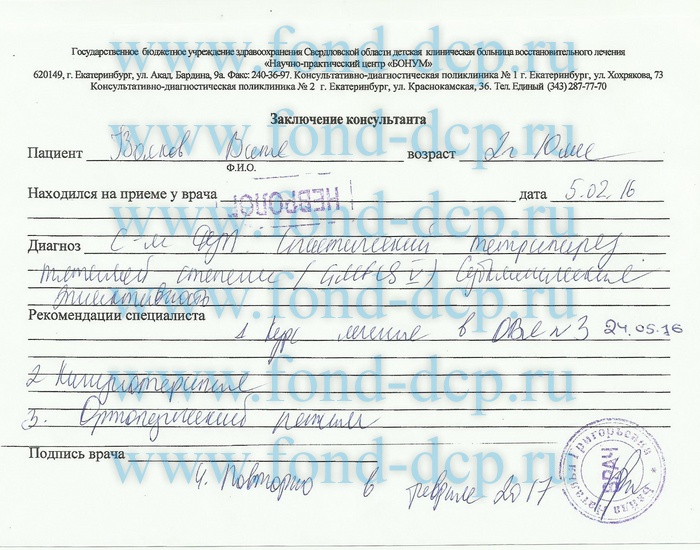 www.fond-dcp.ru
Государственное бюджетное учреждение здравоохранения Свердловской области детская клиническая больница восстановительного лечения
«Научно-практический центр «БОНУМ»
620149, г. Екатеринбург, ул. Акад. Бардина, 9а. Факс: 240-36-97. Консультативно-диагностическая поликлиника № 1 г. Екатеринбург, ул. Хохрякова, 73
Консультативно-диагностическая поликлиника № 2 г. Екатеринбург, ул. Краснокамская, 36. Тел. Единый (343) 287-77-70
Заключение консультанта
www.fond-dcp.ru
Пациент Волков Витя возраст 2г
Ф.И.О.
Находился на приеме у врача НЕВРОЛОГ дата 5.02.16
www.fond-dcp.ru
Диагноз С-м Спастический тетрапарез
тяжелой степени (GMFCS V)
www.fond-dcp.ru
Рекомендации специалиста
1. Курс лечения в ОВЛ №3 24.05.16
www.fond-dcp.ru
2 Кинезиотерапия
3. Ортопедический режим
www.fond-dcp.ru
Подпись врача
www.fond-dcp.ru
4. Повторно в феврале 2017
Наталья Григорьевна
ВРАЧ